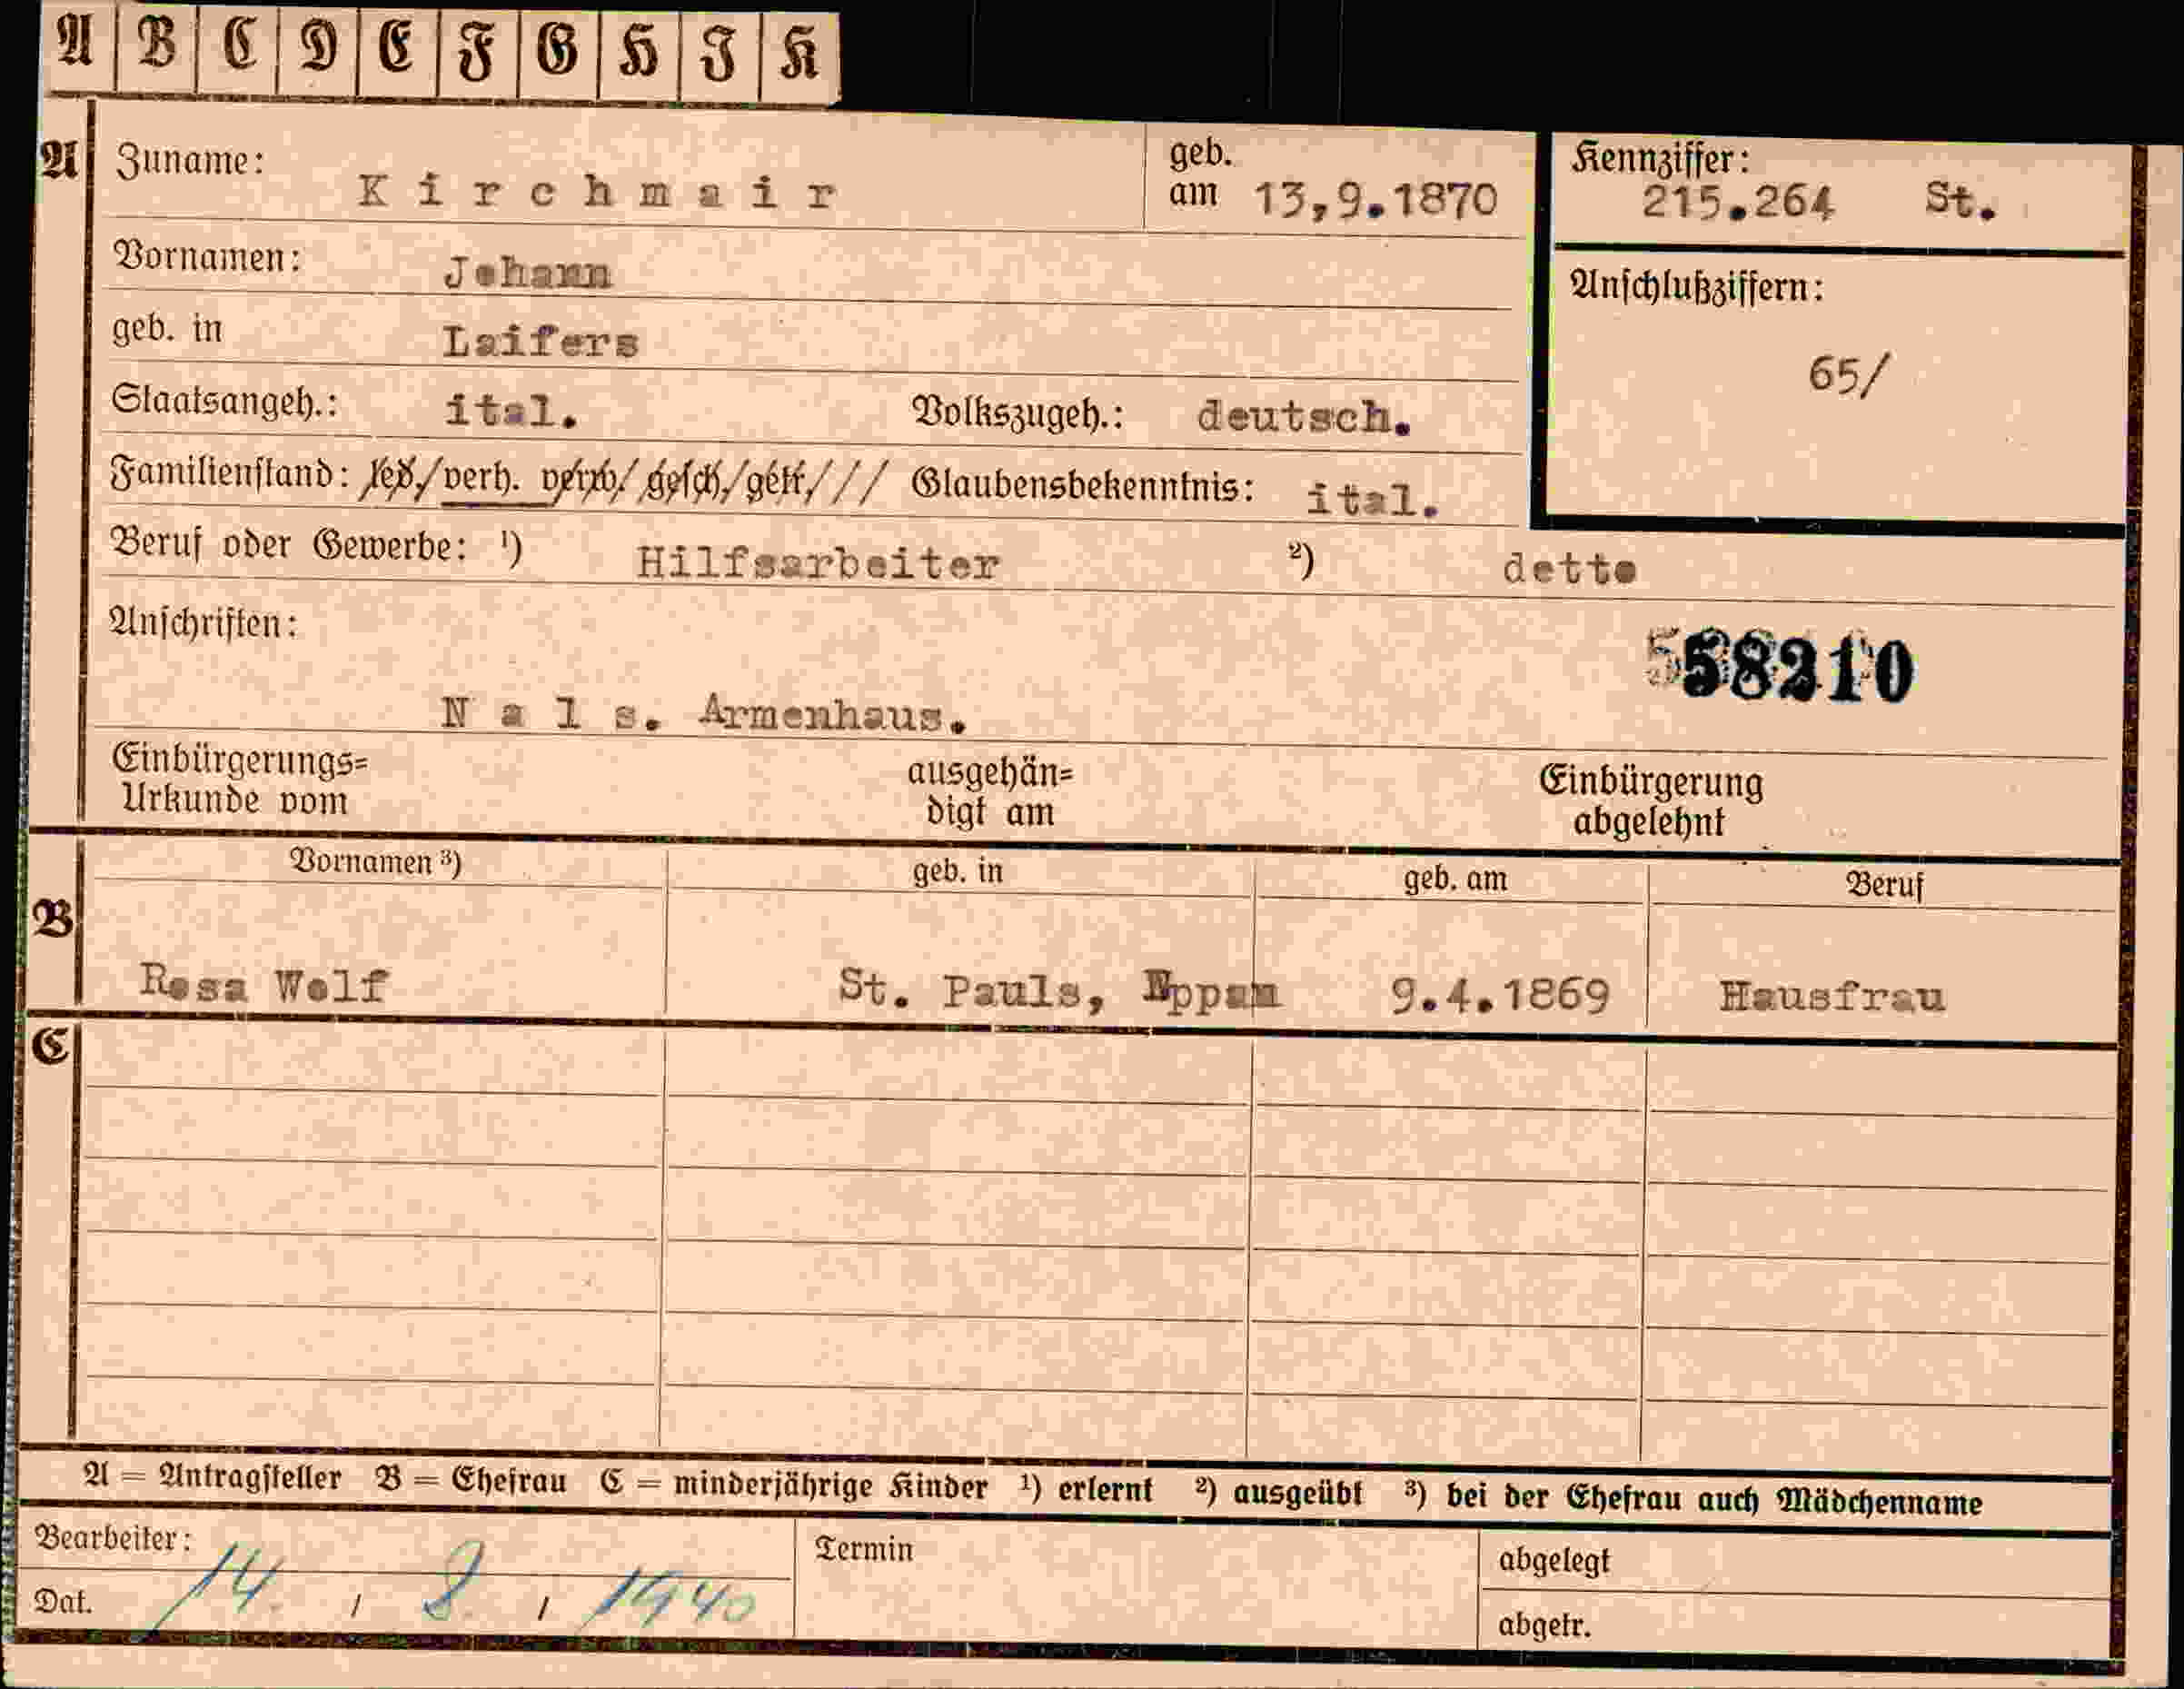 A B C D E F G H J K
A Zuname: Kirchmair geb. am 13,9.1870 Kennziffer: 215.264 St.
Vornamen: Johann Anschlußziffern:
geb. in Laifers 65/
Staatsangeh.: ital. Volkszugeh.: deutsch.
Familienstand: led./verh. verw./gesch./getr./// Glaubensbekenntnis: ital.
Beruf oder Gewerbe: ¹) Hilfsarbeiter ²) detto
Anschriften: 58210
Nals. Armenhaus.
Einbürgerungs= ausgehän= Einbürgerung
Urkunde vom digt am abgelehnt
B Vornamen ³) geb. in geb. am Beruf
Rosa Wolf St. Pauls, Eppan 9.4.1869 Hausfrau
C
A = Antragsteller B = Ehefrau C = minderjährige Kinder ¹) erlernt ²) ausgeübt ³) bei der Ehefrau auch Mädchenname
Bearbeiter: Termin abgelegt
Dat. 14. / 8. / 1940 abgetr.